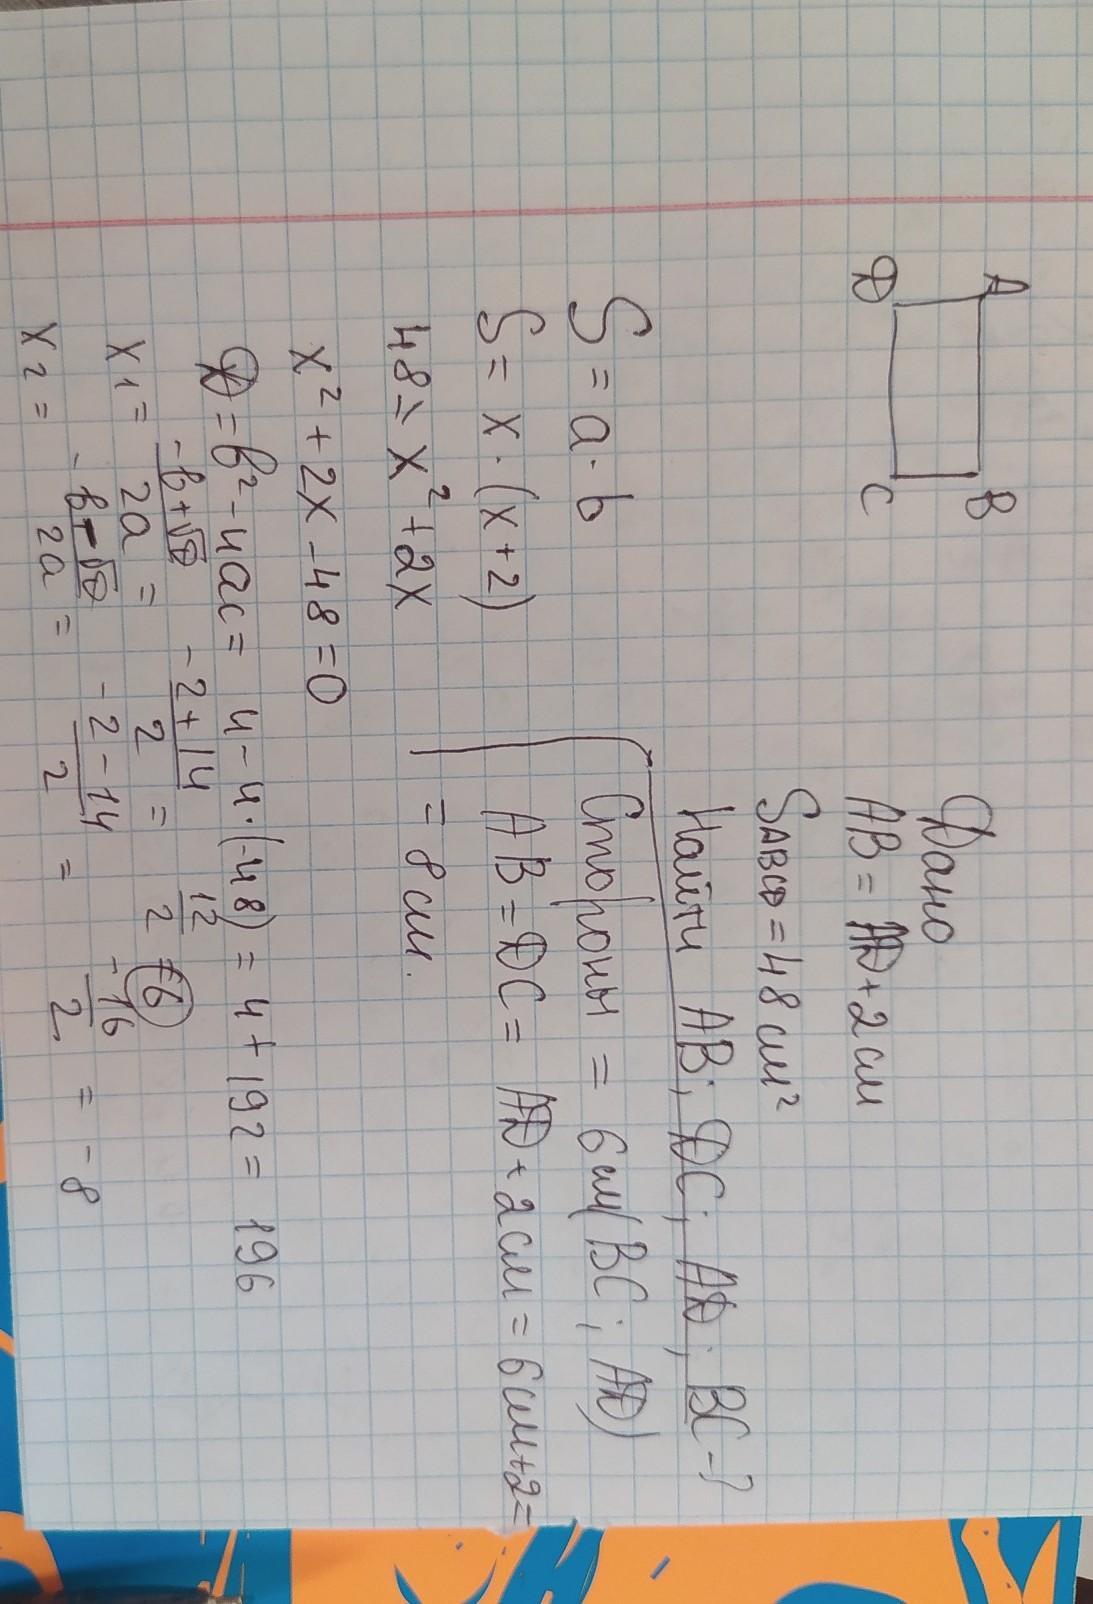 A B
D C
Дано
AB = AD + 2 см
SABCD = 48 см²
Найти AB; DC; AD; BC - ?
S = a · b
S = x · (x + 2)
48 = x² + 2x
x² + 2x - 48 = 0
D = b² - 4ac = 4 - 4·(-48) = 4 + 192 = 196
x1 = -b+√D/2a = -2+14/2 = 12/2 = 6
x2 = -b-√D/2a = -2-14/2 = -16/2 = -8
Стороны = 6см(BC; AD)
AB = DC = AD + 2см = 6см+2=
= 8см.